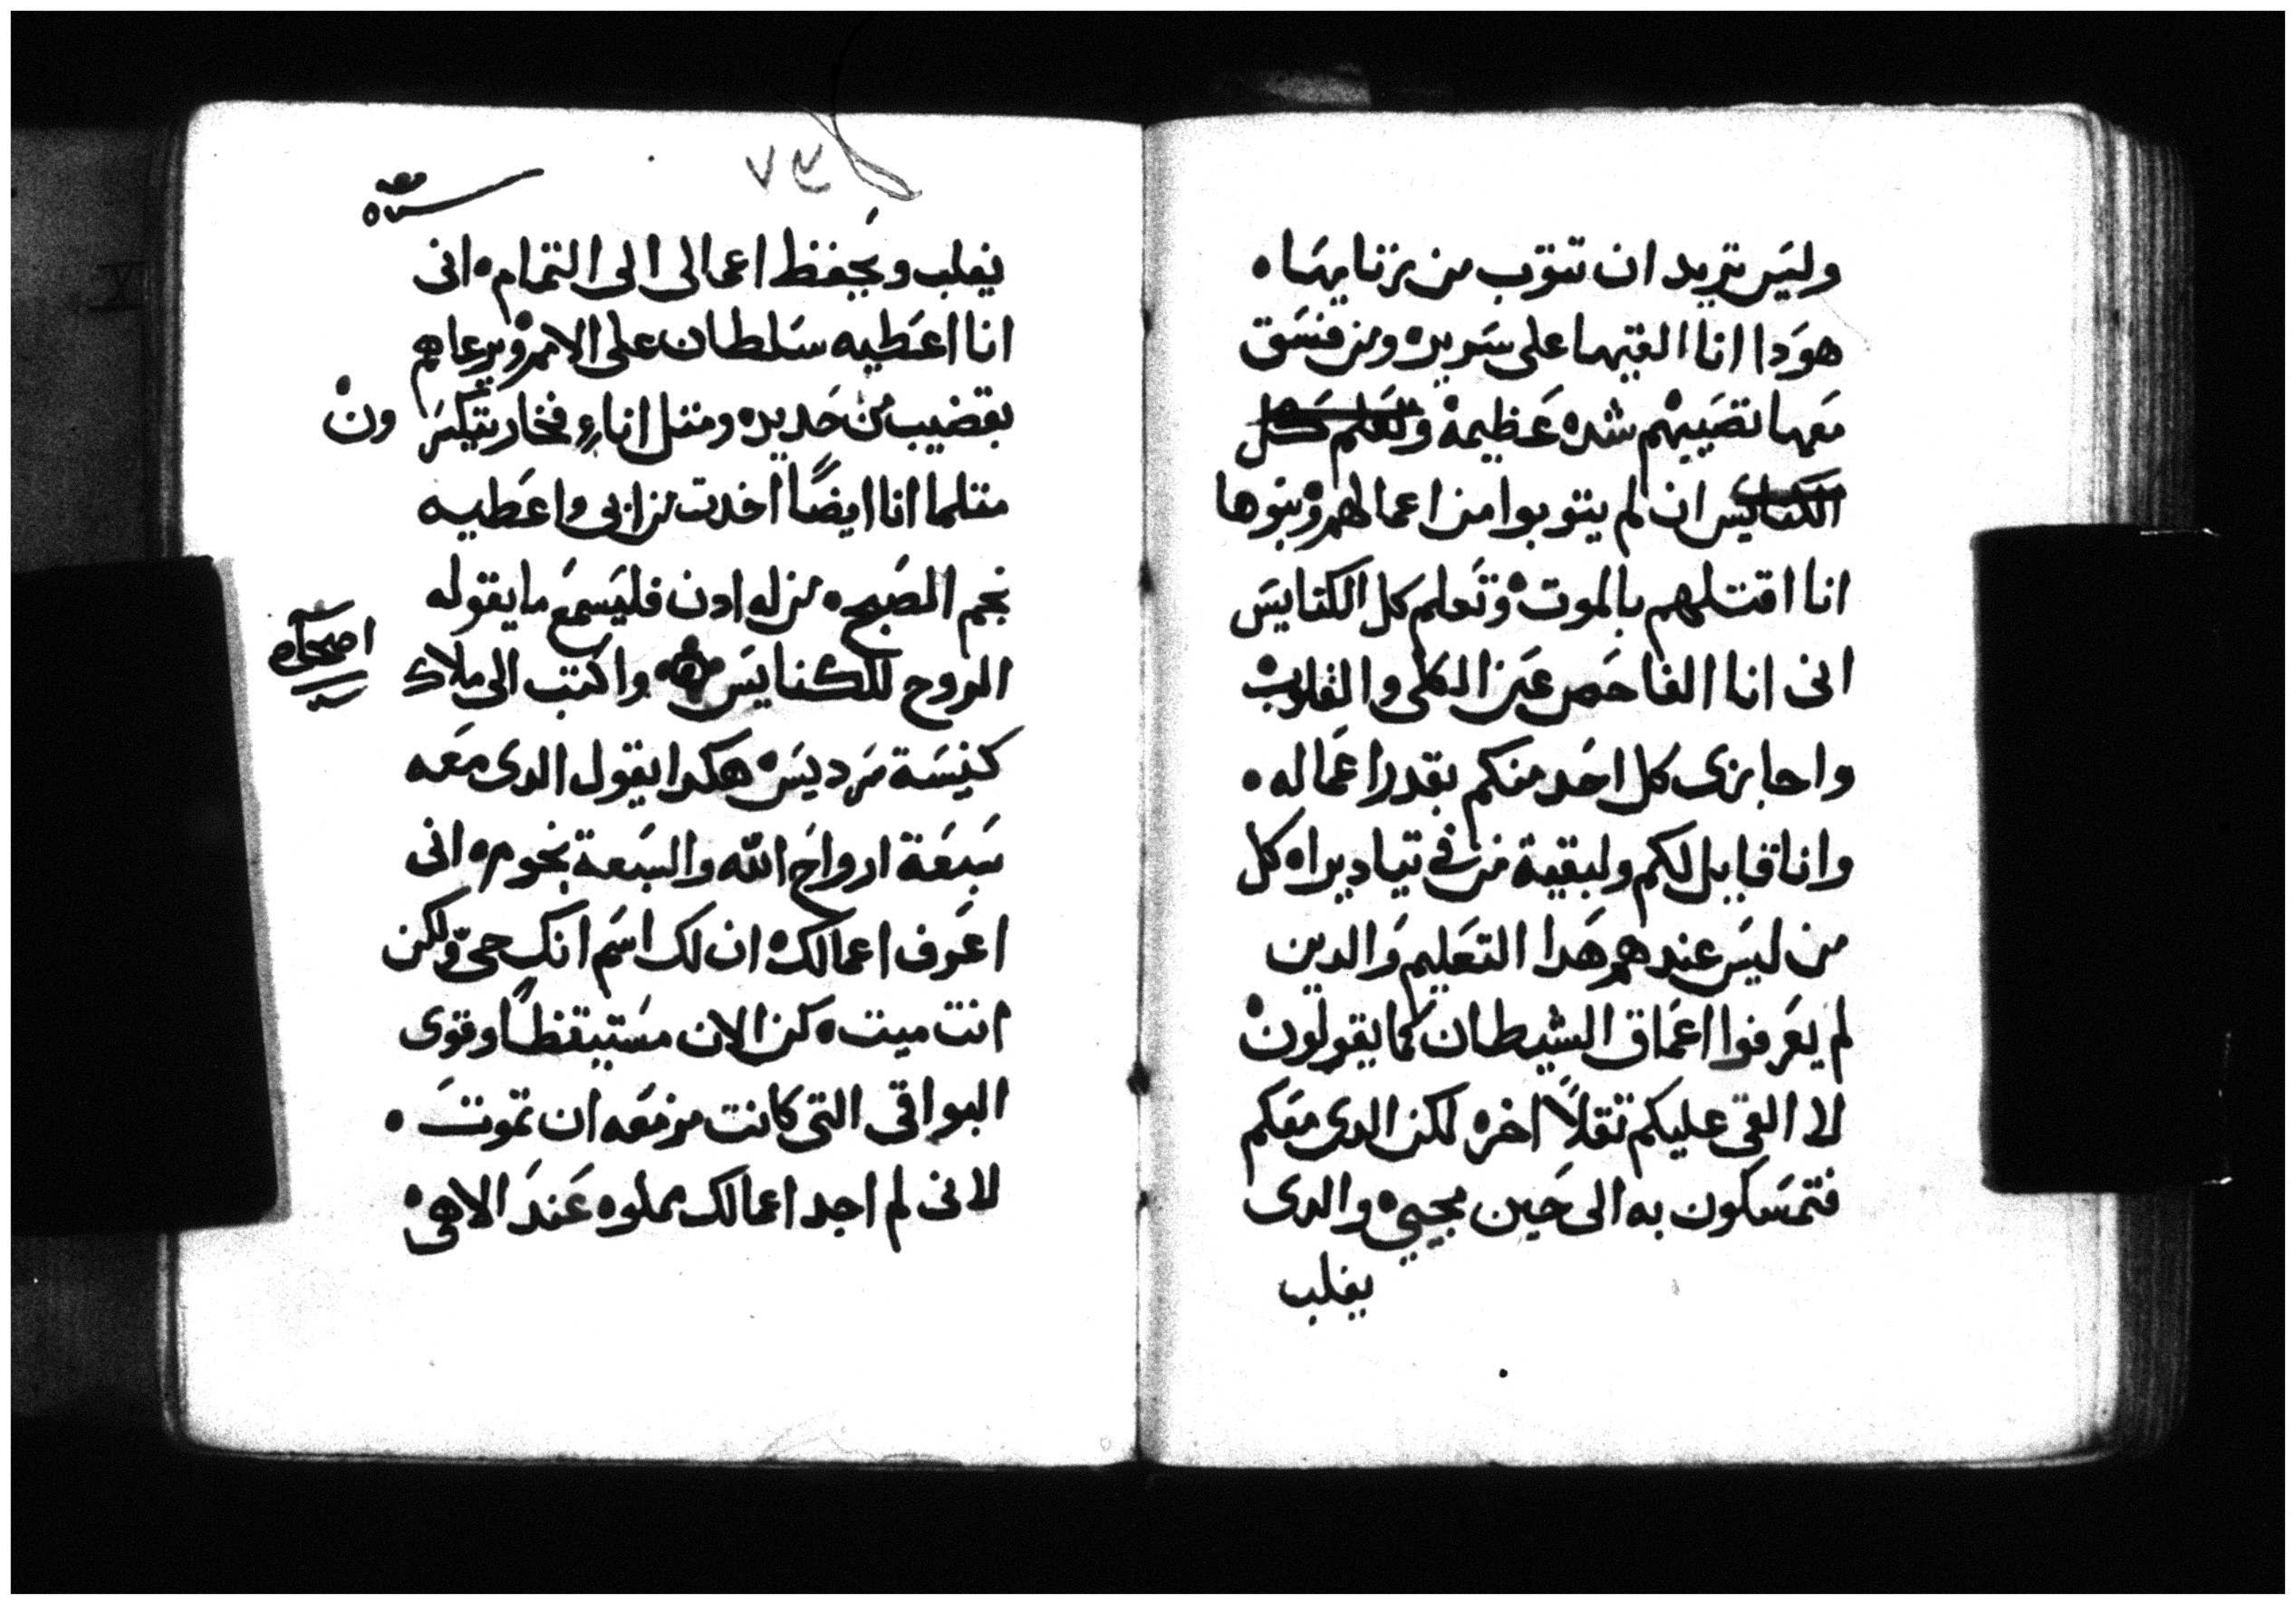 وليس تريد ان تتوب من زنايها ه
هودا انا القيها على سريره ومن فسق
معها تصيبهم شده عظيمة وتعلم كل
الكنايس ان لم يتوبوا من اعمالهم وبنوها
انا اقتلهم بالموت وتعلم كل الكنايس
انى انا الفاحص عن الكلى والقلوب
واجازى كل احد منكم بقدر اعماله ه
وانا قايل لكم ولبقية من فى تياديراه كل
من ليس عندهم هدا التعليم والدين
لم يعرفوا اعماق الشيطان كما يقولون
لا القى عليكم تقلاً اخره لكن الدى معكم
فتمسكون به الى حين مجيى ه والدى
يغلب
٧٤
يغلب ويحفظ اعمالى الى التمام ه انى
انا اعطيه سلطان على الامم ويرعاهم
بقضيب من حديده ومتل اناء فخار يتكسرون
متلما انا ايضاً اخدت من ابى واعطيه
نجم الصبح ه من له ادن فليسمع ما يقوله
الروح للكنايس واكتب الى ملاك
اصحاح
كنيسة سرديس ه هكدا يقول الدى معه
سبعة ارواح الله والسبعة نجوم ه انى
اعرف اعمالك ه ان لك اسم انك حى ولكن
انت ميت ه كن الان مستيقظاً وقوى
البواقى التى كانت مزمعه ان تموت ه
لانى لم اجد اعمالك مملوه عند الاهى